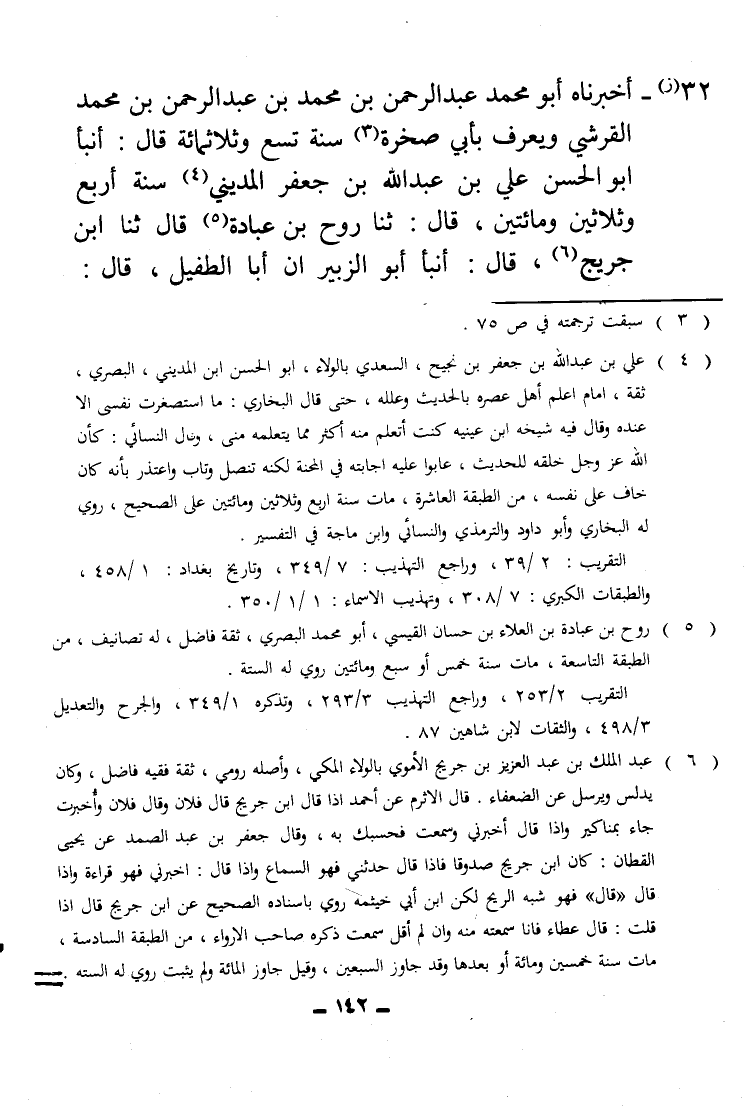 ٣٢(ز) ـ أخبرناه أبو محمد عبدالرحمن بن محمد بن عبدالرحمن بن محمد
القرشي ويعرف بأبي صخرة(٣) سنة تسع وثلاثمائة قال : أنبأ
ابو الحسن علي بن عبدالله بن جعفر المديني(٤) سنة أربع
وثلاثين ومائتين ، قال : ثنا روح بن عبادة(٥) قال ثنا ابن
جريج(٦) ، قال : أنبأ أبو الزبير ان أبا الطفيل ، قال :
( ٣ ) سبقت ترجمته في ص ٧٥ .
( ٤ ) علي بن عبدالله بن جعفر بن نجيح ، السعدي بالولاء ، ابو الحسن ابن المديني ، البصري ،
ثقة ، امام اعلم أهل عصره بالحديث وعلله ، حتى قال البخاري : ما استصغرت نفسى الا
عنده وقال فيه شيخه ابن عينيه كنت أتعلم منه أكثر مما يتعلمه منى ، وقال النسائي : كأن
الله عز وجل خلقه للحديث ، عابوا عليه اجابته في المحنة لكنه تنصل وتاب واعتذر بأنه كان
خاف على نفسه ، من الطبقة العاشرة ، مات سنة اربع وثلاثين ومائتين على الصحيح ، روي
له البخاري وأبو داود والترمذي والنسائي وابن ماجة في التفسير .
التقريب : ٢ /٣٩ ، وراجع التهذيب : ٧ /٣٤٩ ، وتاريخ بغداد : ١ /٤٥٨ ،
والطبقات الكبري : ٧ /٣٠٨ ، وتهذيب الاسماء : ١ /١ /٣٥٠ .
( ٥ ) روح بن عبادة بن العلاء بن حسان القيسي ، أبو محمد البصري ، ثقة فاضل ، له تصانيف ، من
الطبقة التاسعة ، مات سنة خمس أو سبع ومائتين روي له الستة .
التقريب ٢٥٣/٢ ، وراجع التهذيب ٢٩٣/٣ ، وتذكره ٣٤٩/١ ، والجرح والتعديل
٤٩٨/٣ ، والثقات لابن شاهين ٨٧ .
( ٦ ) عبد الملك بن عبد العزيز بن جريج الأموي بالولاء المكي ، وأصله رومي ، ثقة فقيه فاضل ، وكان
يدلس ويرسل عن الضعفاء . قال الاثرم عن أحمد اذا قال ابن جريج قال فلان وقال فلان وأُخبرت
جاء بمناكير واذا قال أخبرني وسمعت فحسبك به ، وقال جعفر بن عبد الصمد عن يحيى
القطان : كان ابن جريج صدوقا فاذا قال حدثني فهو السماع واذا قال : اخبرني فهو قراءة واذا
قال «قال» فهو شبه الريح لكن ابن أبي خيثمه روي باسناده الصحيح عن ابن جريج قال اذا
قلت : قال عطاء فانا سمعته منه وان لم أقل سمعت ذكره صاحب الارواء ، من الطبقة السادسة ،
مات سنة خمسين ومائة أو بعدها وقد جاوز السبعين ، وقيل جاوز المائة ولم يثبت روي له السته .
ـ ١٤٢ ـ